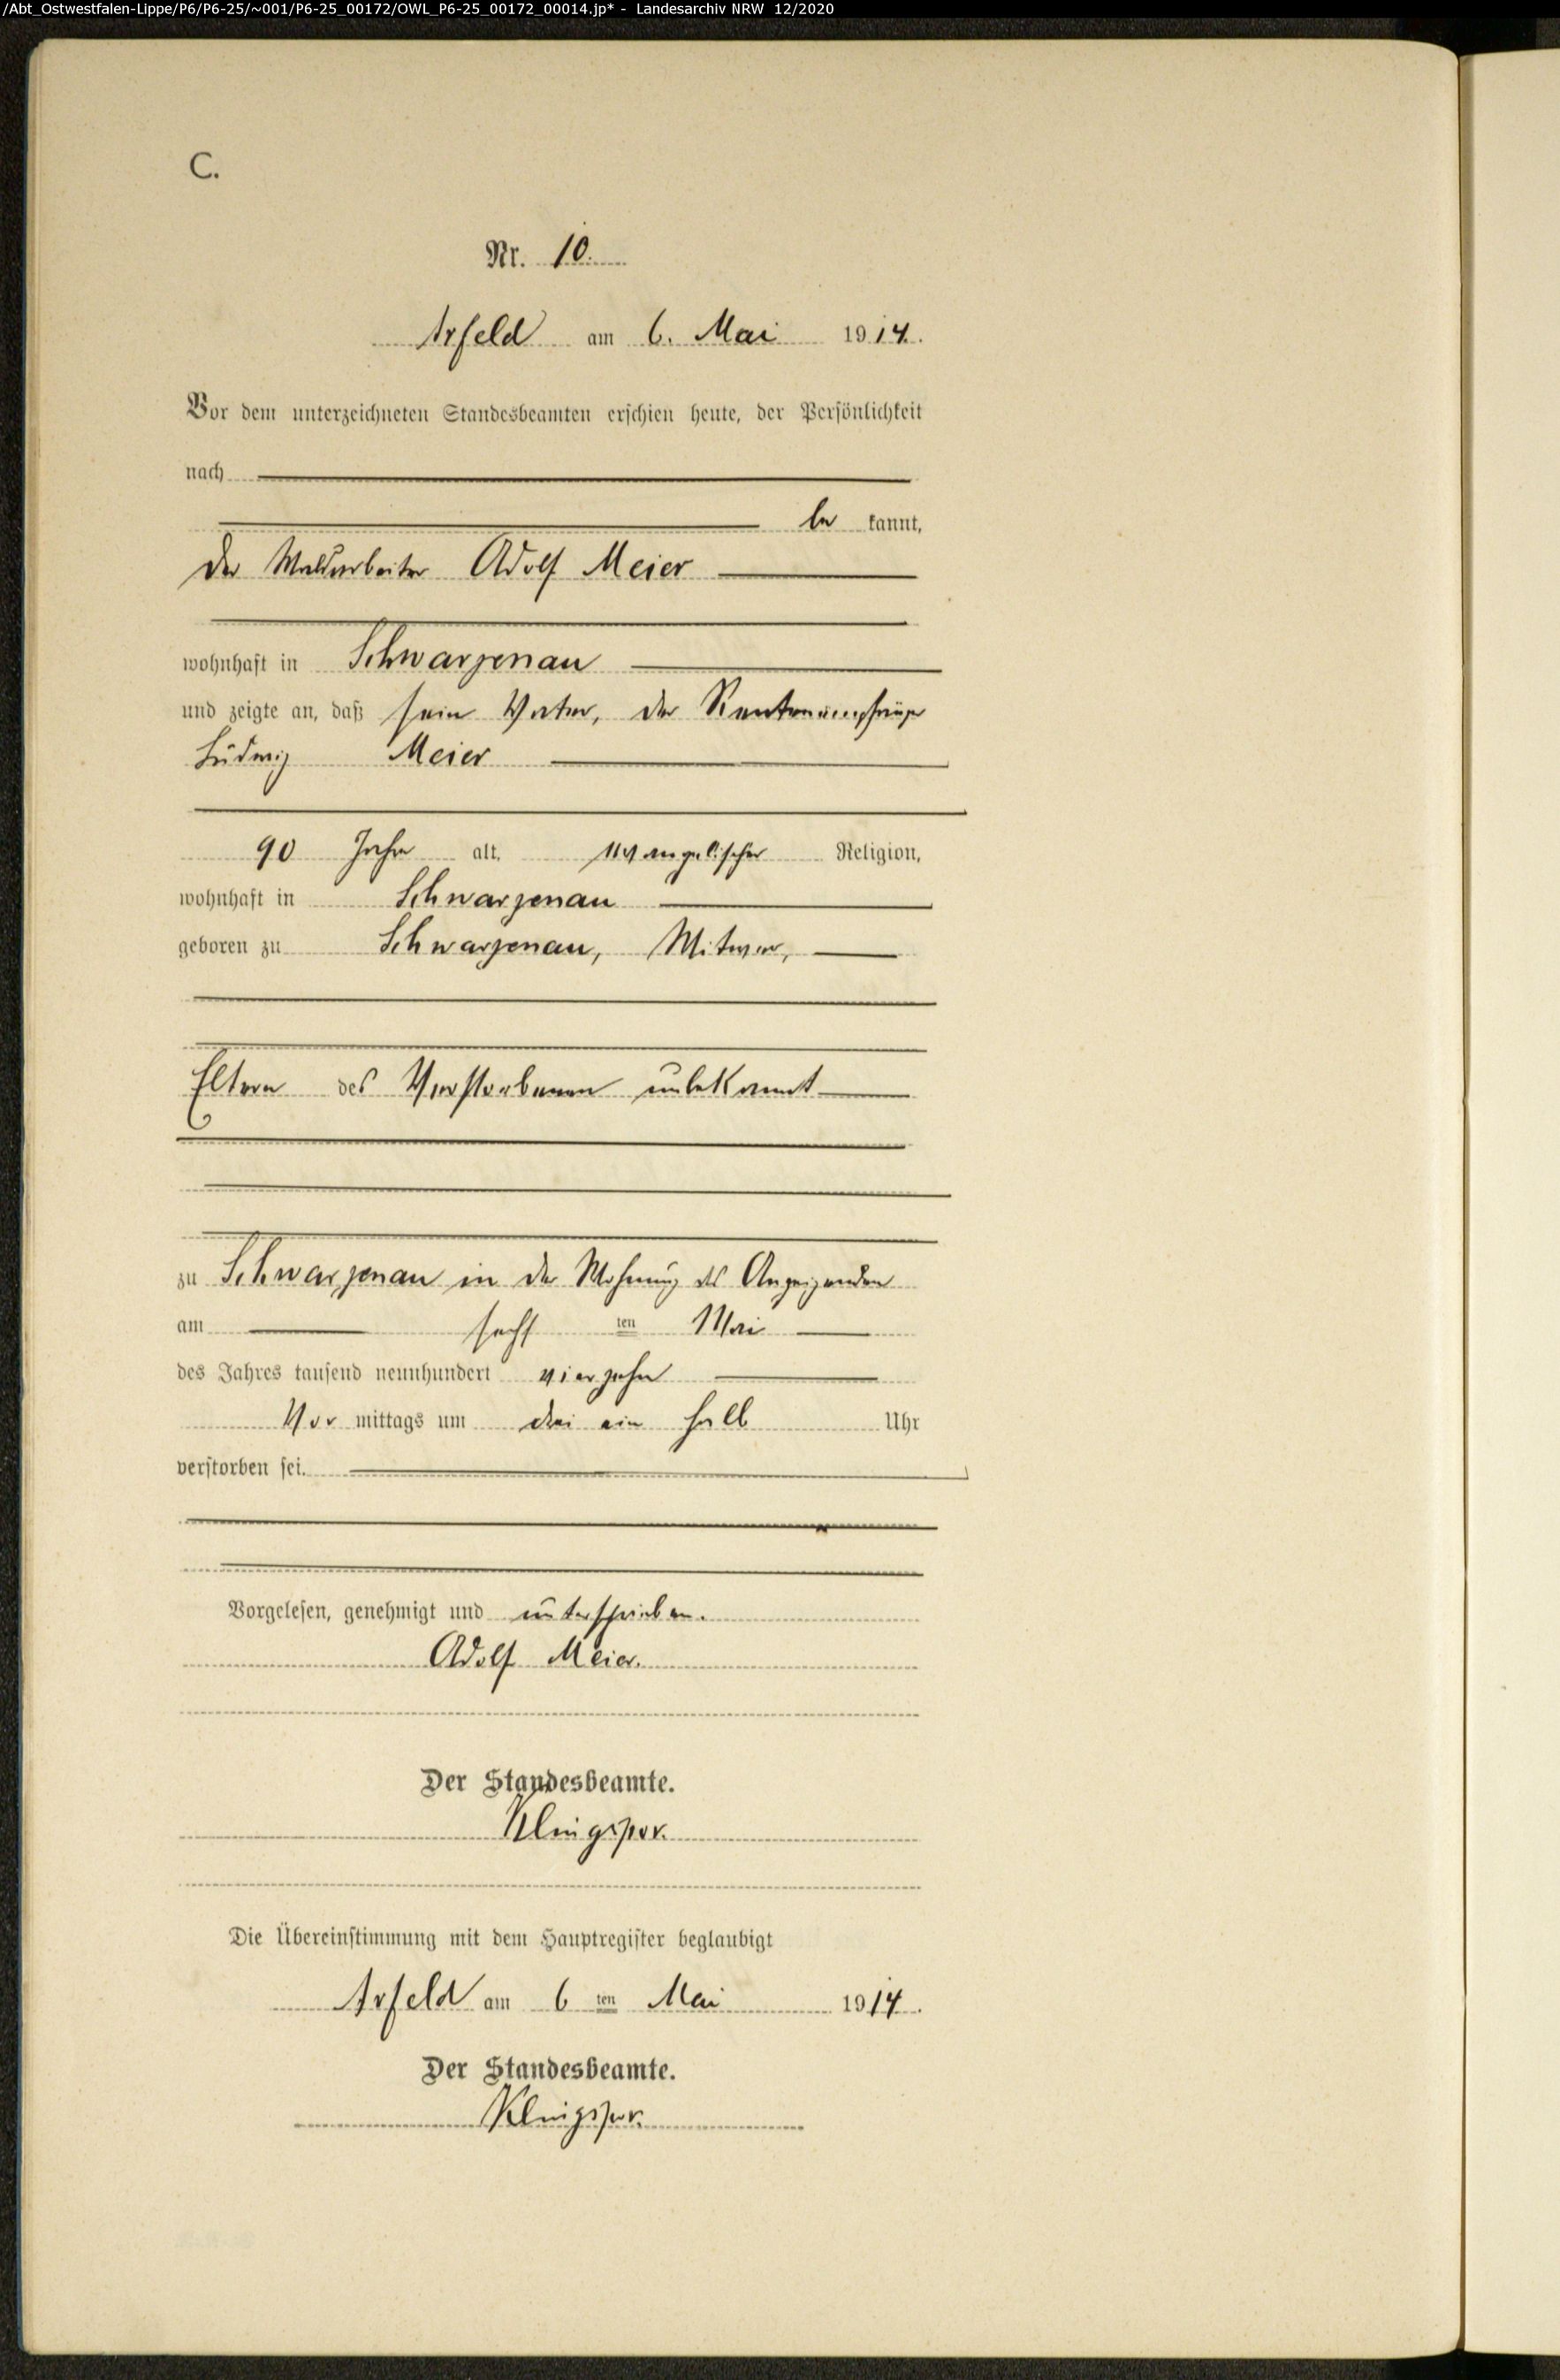 /Abt_Ostwestfalen-Lippe/P6/P6-25/~001/P6-25_00172/OWL_P6-25_00172_00014.jp* - Landesarchiv NRW 12/2020
C.
Nr. 10.
Arfeld am 6. Mai 1914.
Vor dem unterzeichneten Standesbeamten erschien heute, der Persönlichkeit
nach
be kannt,
der Waldarbeiter Adolf Meier
wohnhaft in Schwarzenau
und zeigte an, daß sein Vater, der Rentenempfänger
Ludwig Meier
90 Jahre alt, evangelischer Religion,
wohnhaft in Schwarzenau
geboren zu Schwarzenau, Witwer,
Eltern des Verstorbenen unbekannt
zu Schwarzenau in der Wohnung des Anzeigenden
am sechsten Mai
des Jahres tausend neunhundert vierzehn
Vor mittags um drei ein halb Uhr
verstorben sei.
Vorgelesen, genehmigt und unterschrieben.
Adolf Meier.
Der Standesbeamte.
Klingspor.
Die Übereinstimmung mit dem Hauptregister beglaubigt
Arfeld am 6 ten Mai 1914.
Der Standesbeamte.
Klingspor.